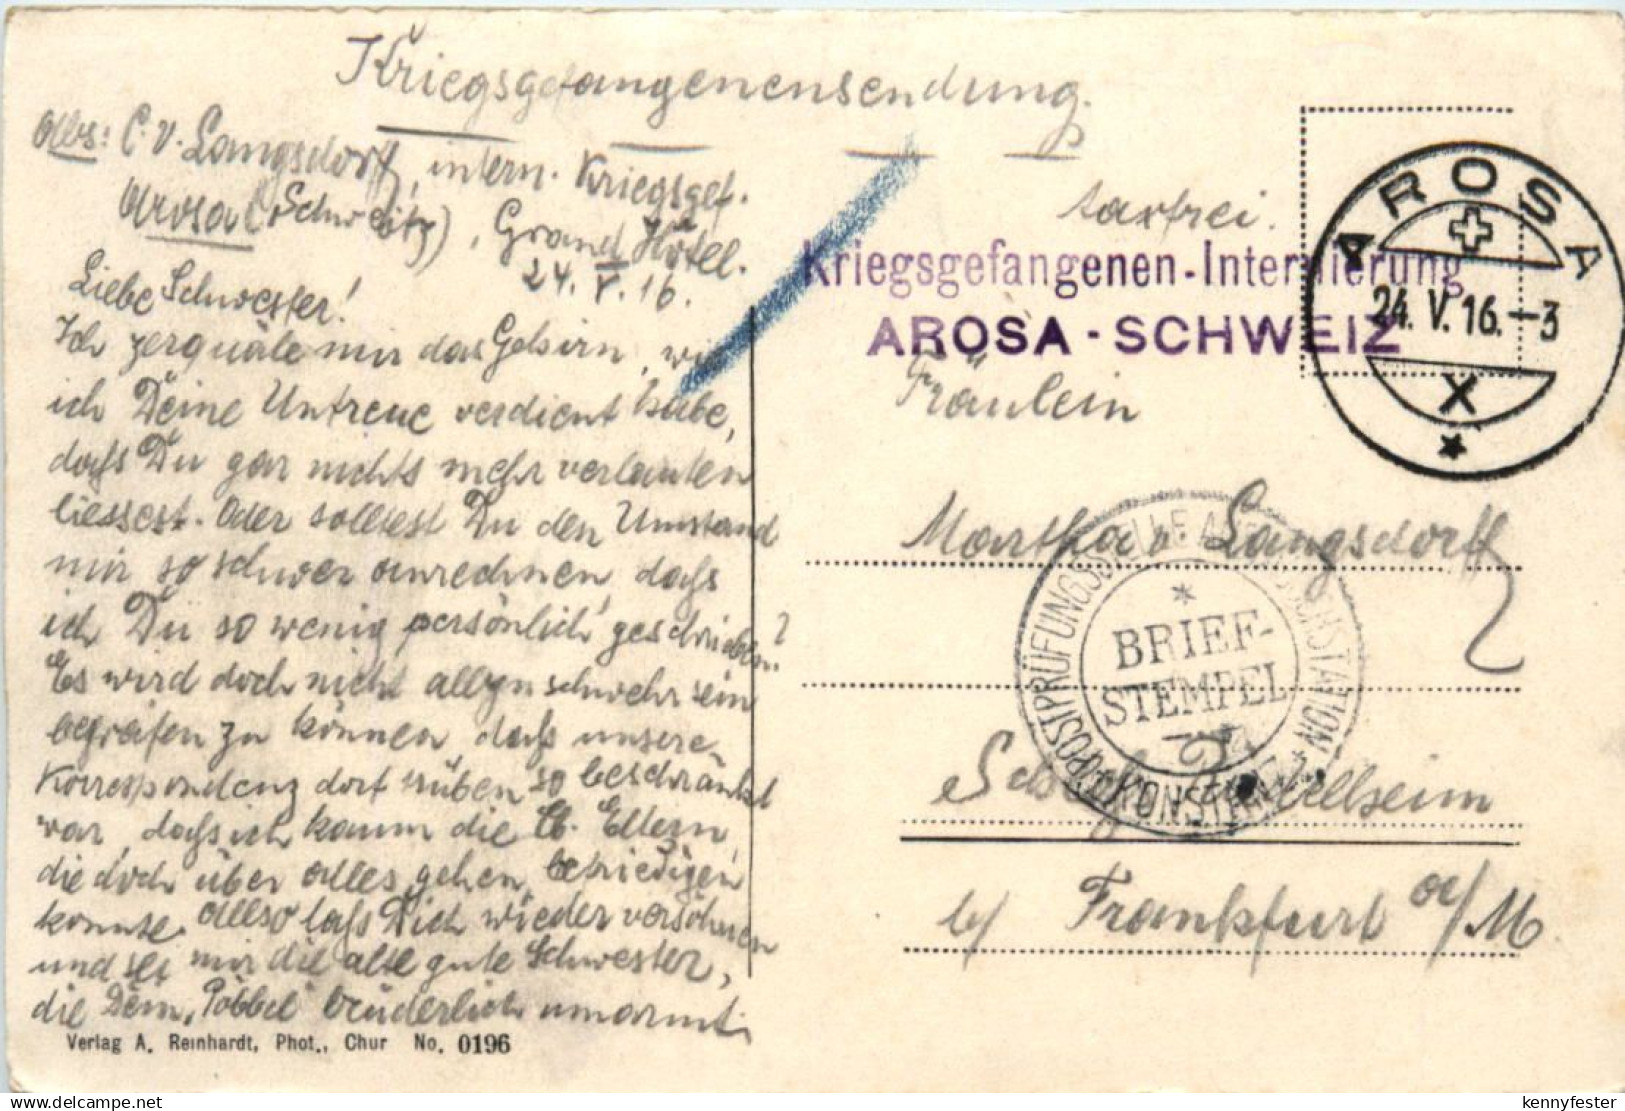 Kriegsgefangenensendung.
Abs: C. v. Langsdorff, intern. Kriegsgef.
Arosa (Schweitz), Grand Hôtel.
24. V. 16.
Liebe Schwester!
Ich zerquäle mir das Gehirn, wie
ich Deine Untreue verdient habe,
dass Du gar nichts mehr verlauten
liessest. Oder solltest Du den Umstand
mir so schwer anrechnen, dass
ich Du so wenig persönlich geschrieben?
Es wird doch nicht allzu schwehr sein
begreifen zu können, dass unsere
Korrespondenz dort drüben so beschränkt
war, dass ich kaum die lb. Eltern,
die doch über alles gehen, befriedigen
konnte. Allso lass Dich wieder versöhnen
und sei mir die alte gute Schwester,
die Dein "Pöbbel" brüderlich umarmt.
Verlag A. Reinhardt, Phot., Chur No. 0196
taxfrei.
Kriegsgefangenen-Internierung
AROSA - SCHWEIZ
AROSA
24. V. 16.-3
X
Fräulein
Martha v. Langsdorff
POSTPRÜFUNGSSTELLE
BRIEF-
STEMPEL
KONSTANZ
b/ Frankfurt a/M
kennyfester